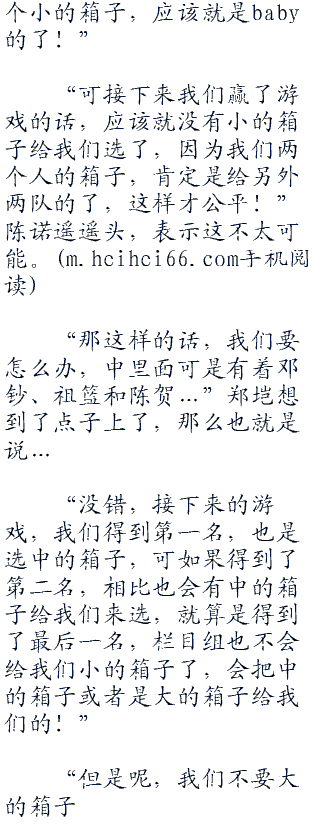 个小的箱子，应该就是baby
的了！”
“可接下来我们赢了游
戏的话，应该就没有小的箱
子给我们选了，因为我们两
个人的箱子，肯定是给另外
两队的了，这样才公平！”
陈诺遥遥头，表示这不太可
能。(m.hcihci66.com手机阅
读)
“那这样的话，我们要
怎么办，中里面可是有着邓
钞、祖篮和陈贺…”郑垲想
到了点子上了，那么也就是
说…
“没错，接下来的游
戏，我们得到第一名，也是
选中的箱子，可如果得到了
第二名，相比也会有中的箱
子给我们来选，就算是得到
了最后一名，栏目组也不会
给我们小的箱子了，会把中
的箱子或者是大的箱子给我
们的！”
“但是呢，我们不要大
的箱子